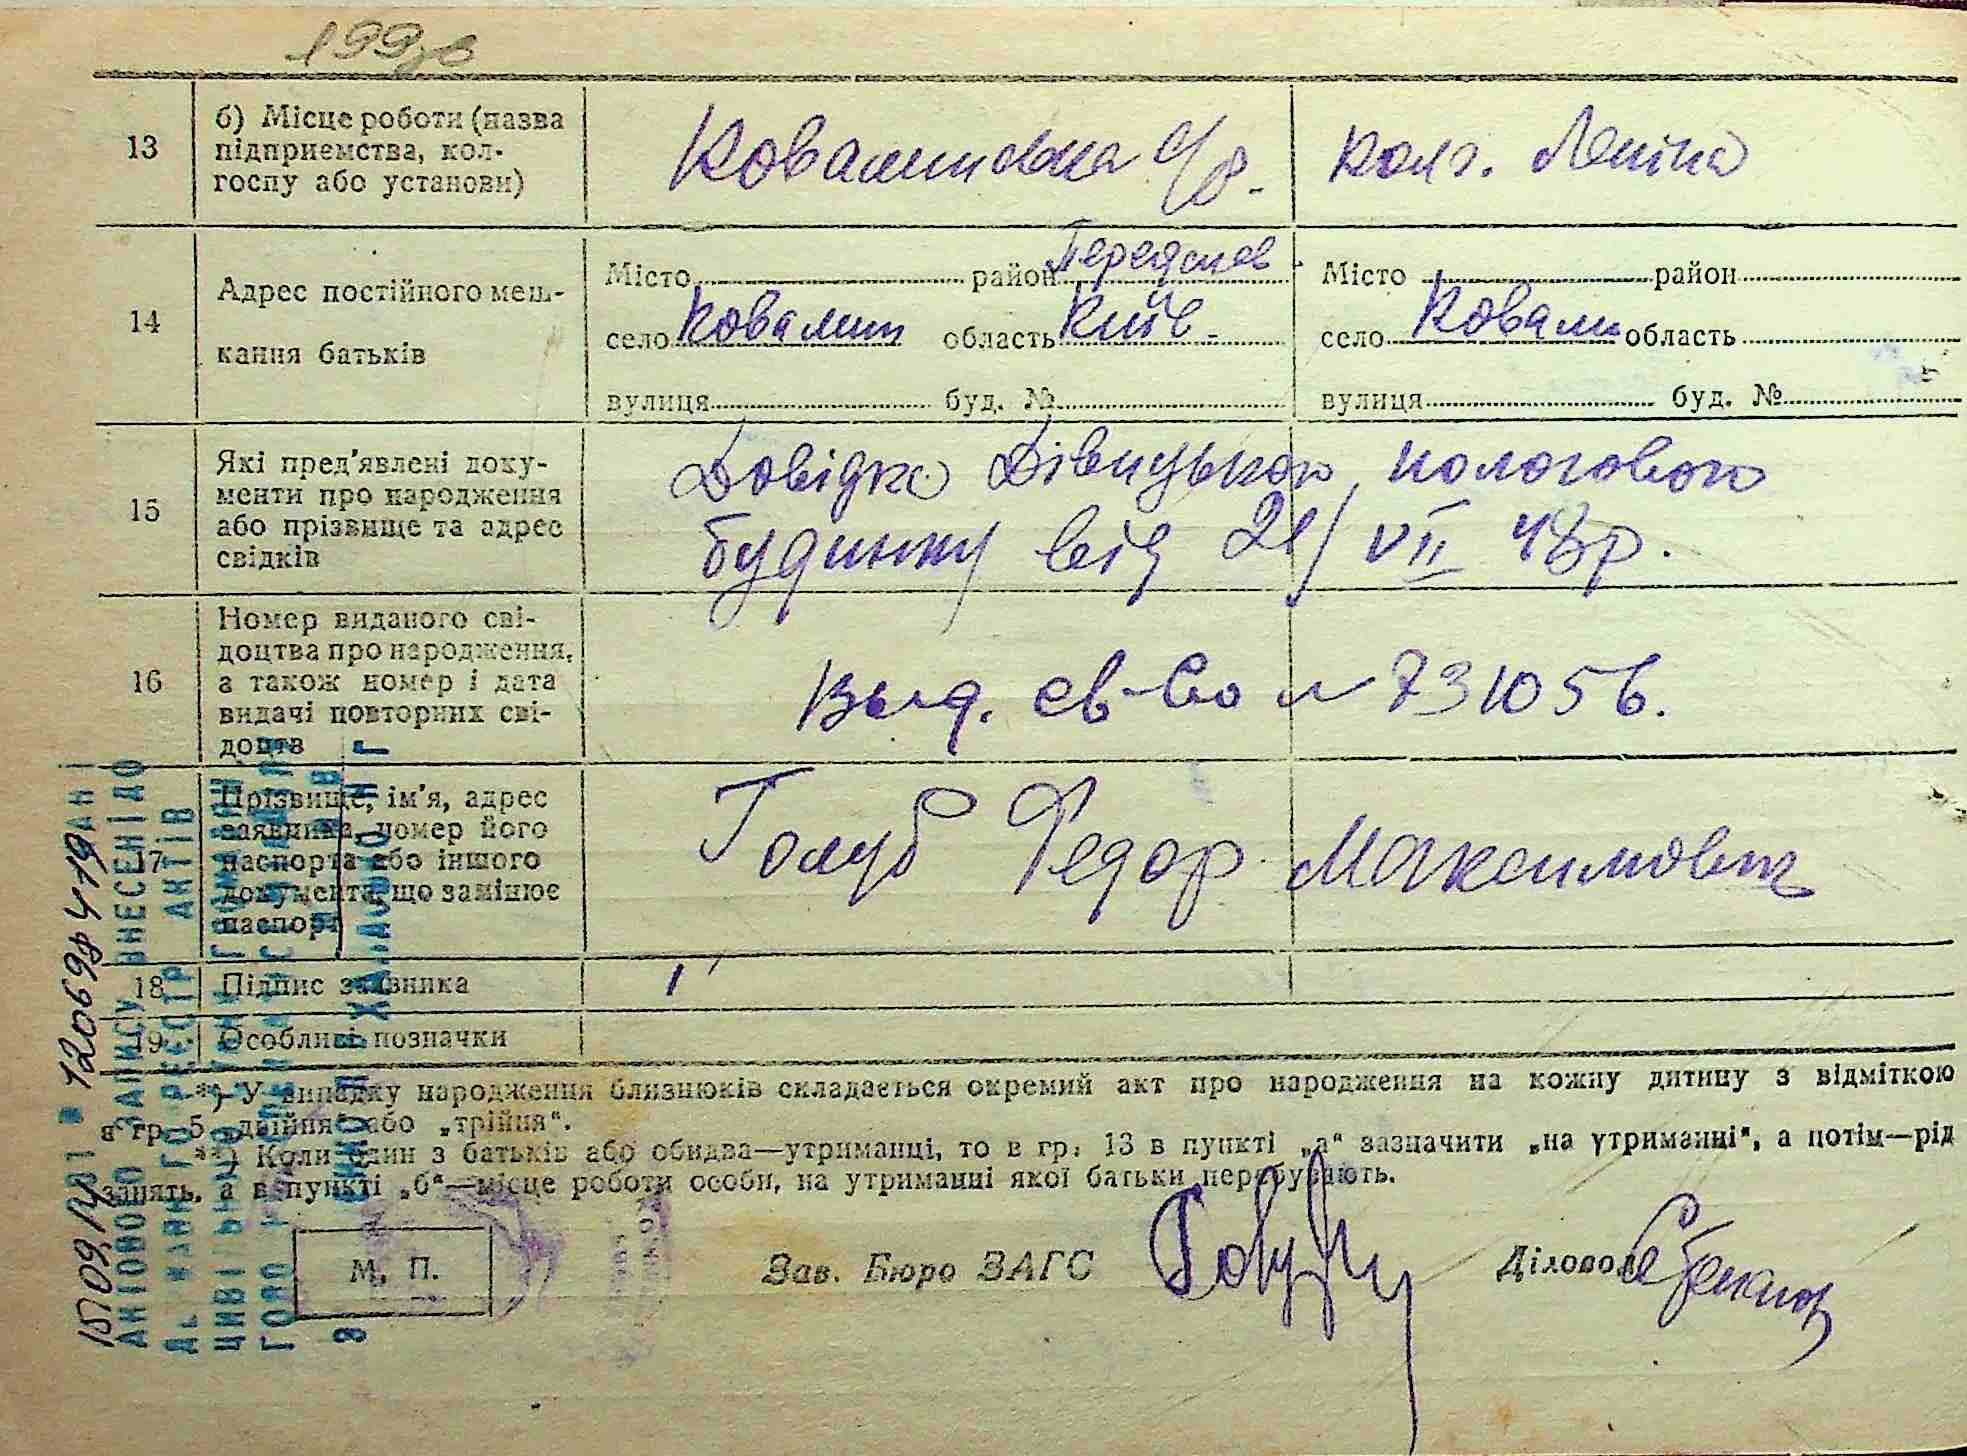 199зв
13
б) Місце роботи (назва
підприємства, кол-
госпу або установи)
Ковалинська с/р.
колг. Леніна
14
Адрес постійного меш-
кання батьків
Місто район Переяслав
село Ковалин область Київ-
вулиця буд. №
Місто район
село Ковали область
вулиця буд. №
15
Які пред'явлені доку-
менти про народження
або прізвище та адрес
свідків
Довідка Дівицького пологового
будинку від 21/VII 48р.
16
Номер виданого сві-
доцтва про народження,
а також номер і дата
видачі повторних сві-
доцтв
Выд. св-во № 731056.
17
Прізвище, ім'я, адрес
заявника, номер його
паспорта або іншого
документа, що замінює
паспорт
Голуб Федор Максимович
18
Підпис заявника
19
Особливі позначки
*) У випадку народження близнюків складається окремий акт про народження на кожну дитину з відміткою
в гр. 5 „двійня“ або „трійня“.
**) Коли один з батьків або обидва—утриманці, то в гр. 13 в пункті „а“ зазначити „на утриманні“, а потім—рід
занять, а в пункті „б“—місце роботи особи, на утриманні якої батьки перебувають.
М. П.
Зав. Бюро ЗАГС
Діловод
АКТОВОГО ЗАПИСУ ВНЕСЕНІ ДО
РЕЄСТР АКТІВ
ЦИВІЛЬНОГО